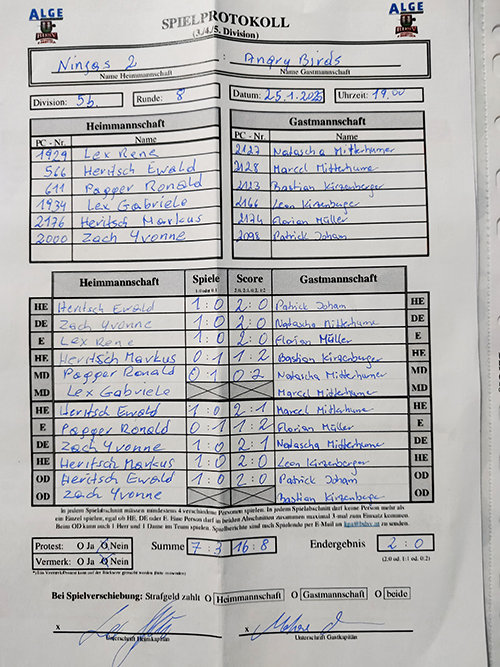 ALGE
SPIELPROTOKOLL
(3./4./5. Division)
ALGE
Ninjas 2 : Angry Birds
Name Heimmannschaft Name Gastmannschaft
Division: 5b. Runde: 8 Datum: 25.1.2025 Uhrzeit: 19.00
Heimmannschaft Gastmannschaft
PC - Nr. Name PC - Nr. Name
1929 Lex Rene 2127 Natascha Mitterhumer
566 Heritsch Ewald 2128 Marcel Mitterhumer
611 Pagger Ronald 2123 Bastian Kirzenberger
1934 Lex Gabriele 2166 Leon Kirzenberger
2176 Heritsch Markus 2174 Florian Müller
2000 Zach Yvonne 2098 Patrick Joham
Heimmannschaft Spiele Score Gastmannschaft
1:0 oder 0:1 2:0, 2:1, 0:2, 1:2
HE Heritsch Ewald 1:0 2:0 Patrick Joham HE
DE Zach Yvonne 1:0 2:0 Natascha Mitterhumer DE
E Lex Rene 1:0 2:0 Florian Müller E
HE Heritsch Markus 0:1 1:2 Bastian Kirzenberger HE
MD Pagger Ronald 0:1 0:2 Natascha Mitterhumer MD
MD Lex Gabriele Marcel Mitterhumer MD
HE Heritsch Ewald 1:0 2:1 Marcel Mitterhumer HE
E Pagger Ronald 0:1 1:2 Florian Müller E
DE Zach Yvonne 1:0 2:1 Natascha Mitterhumer DE
HE Heritsch Markus 1:0 2:0 Leon Kirzenberger HE
OD Heritsch Ewald 1:0 2:0 Patrick Joham OD
OD Zach Yvonne Bastian Kirzenberger OD
In jedem Spielabschnitt müssen mindestens 4 verschiedene Personen spielen. In jedem Spielabschnitt darf keine Person mehr als
ein Einzel spielen, egal ob HE, DE oder E. Eine Person darf in beiden Abschnitten zusammen maximal 3 mal zum Einsatz kommen.
Beim OD kann auch 1 Herr und 1 Dame im Team spielen. Spielberichte sind noch Spielende per E-Mail an zu senden.
Protest: O Ja O Nein Summe 7:3 16:8 Endergebnis 2:0
Vermerk: O Ja O Nein (2:0 od. 1:1 od. 0:2)
Bei Spielverschiebung: Strafgeld zahlt O Heimmannschaft O Gastmannschaft O beide
x x
Unterschrift Heimkapitän Unterschrift Gastkapitän